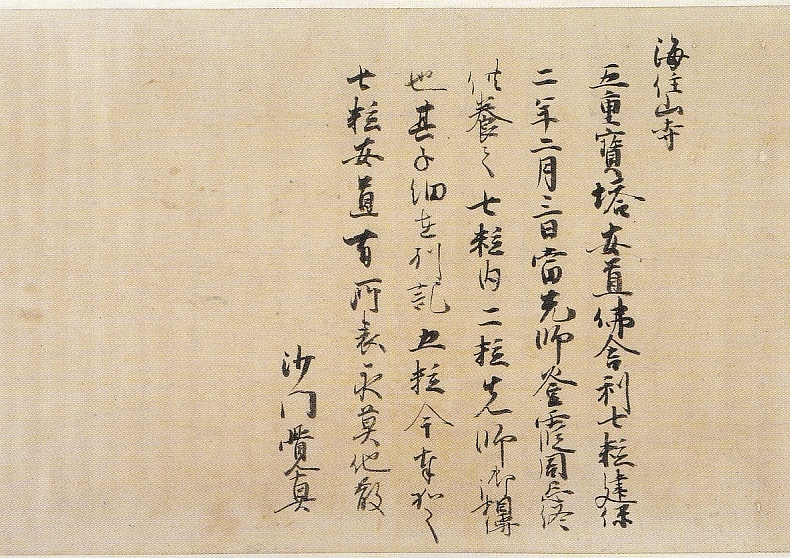 海住山寺
五重寳塔安置佛舎利七粒建保
二年二月三日當先師聖霊周忌終
供養之七粒内二粒先師御相傳
也其子細在別記五粒今奉加之
七粒安置有所表永莫他散
沙門覺真